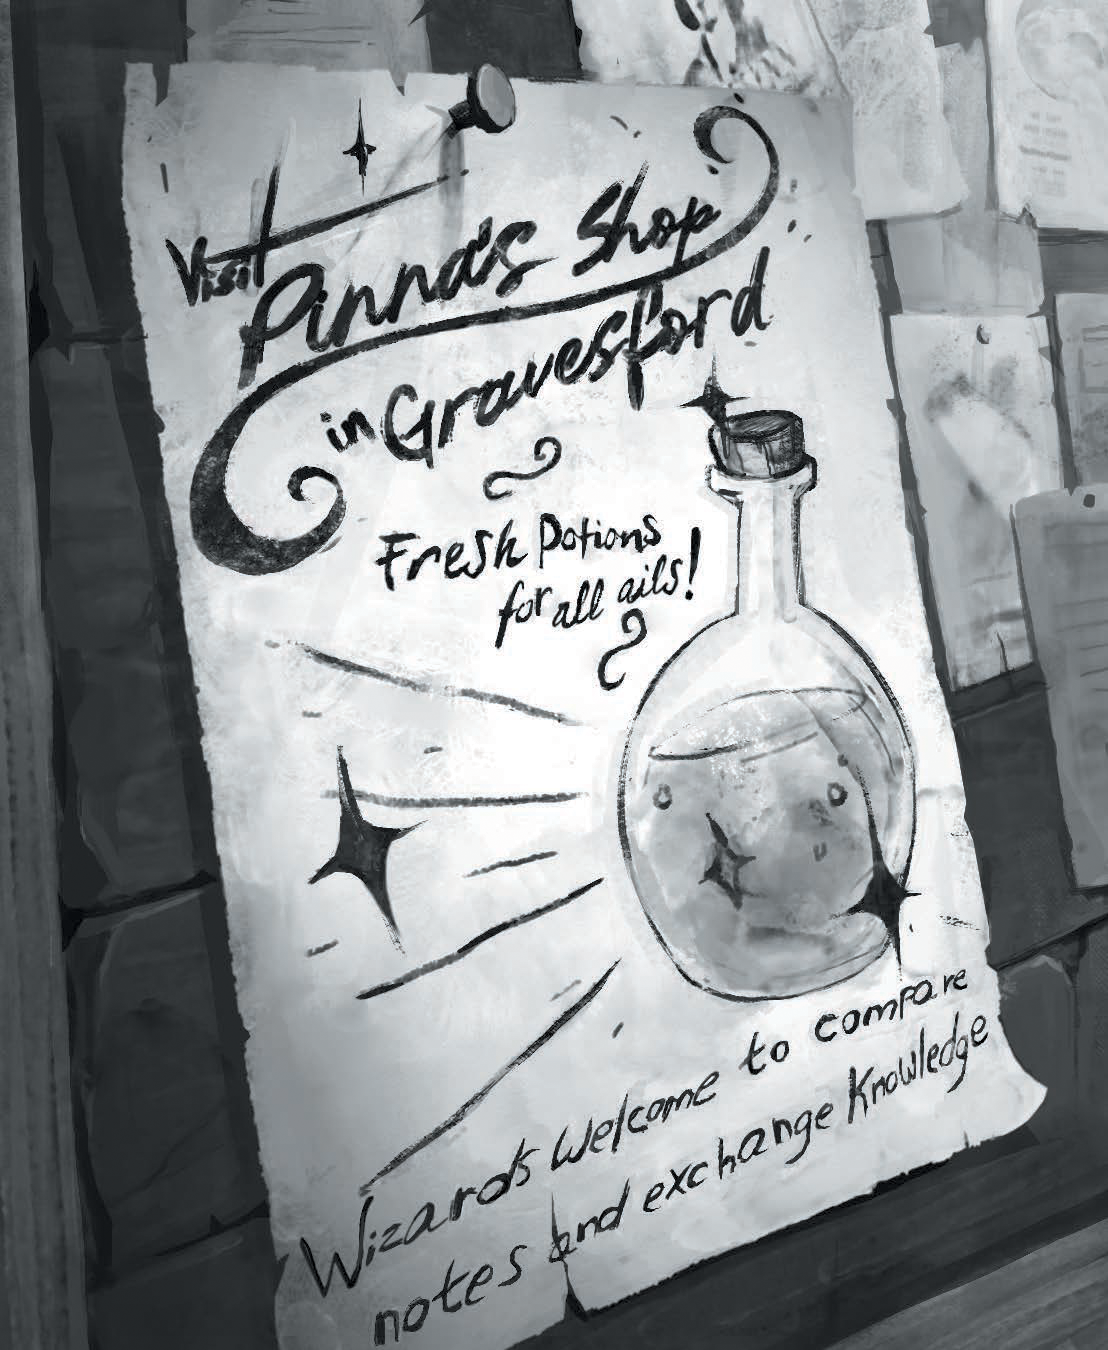 Visit
Pinna's Shop
in Gravesford
Fresh Potions
for all ails!
Wizards Welcome to compare
notes and exchange Knowledge